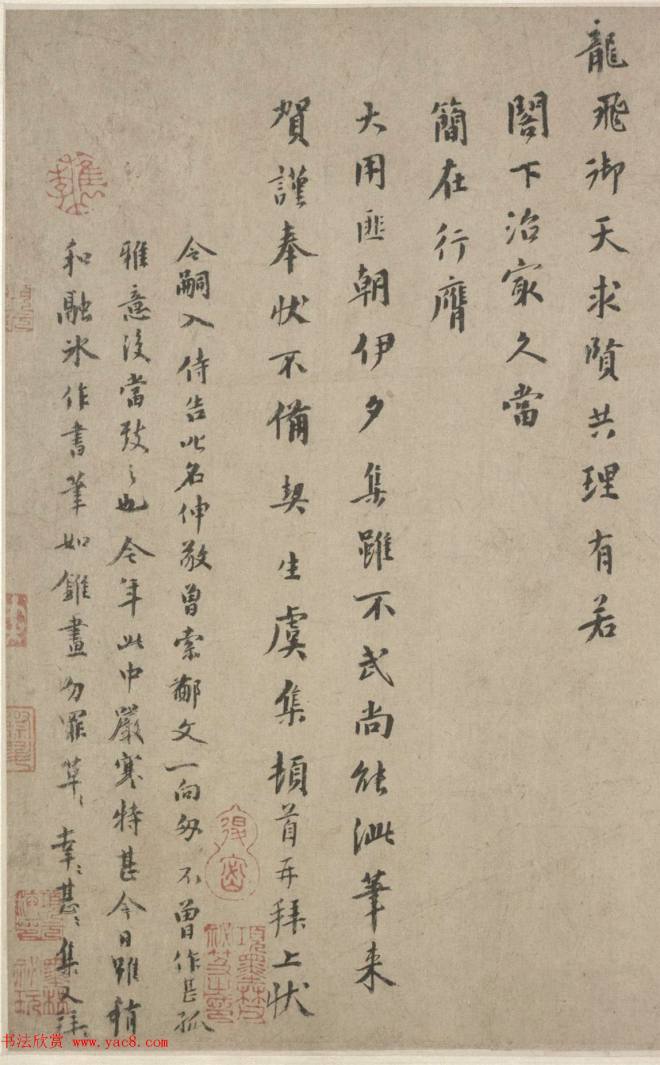 龍飛御天求賢共理有若
閤下治家久當
簡在行膺
大用匪朝伊夕集雖不武尚能泚筆来
賀謹奉狀不備契生虞集頓首再拜上狀
令嗣入侍告此名伸敬曾索鄙文一向匆不曽作甚孤
雅意後當致之也今年此中嚴寒特甚今日雖稍
和融冰作書筆如錐畫勿罪草〻幸〻甚〻集又拜〻
書法欣赏 www.yac8.com